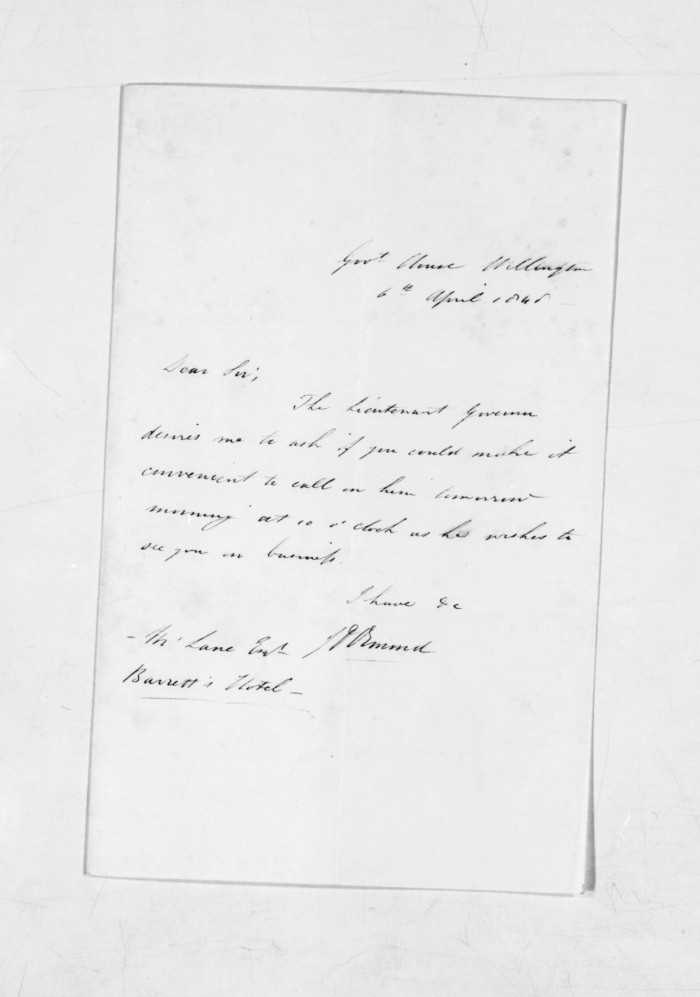 Govt. House Wellington
6th April 1848
Dear Sir,
The Lieutenant Governor
desires me to ask if you could make it
convenient to call on him tomorrow
morning at 10 o'clock as he wishes to
see you on business.
I have &c
Mc Lane Esqr JDOrmond
Barrett's Hotel